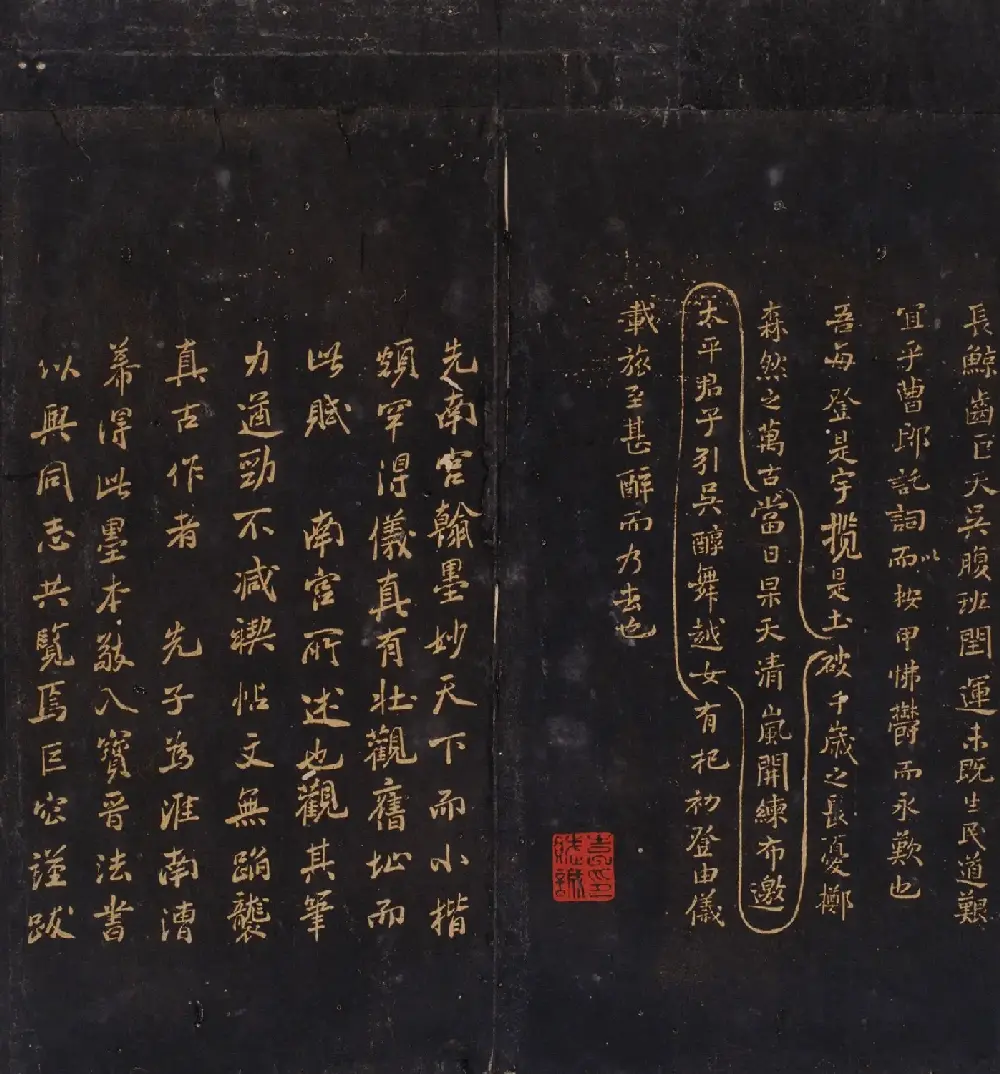 長鯨齒巨天吳腹班閏運未既生民道艱
宜乎曹郎託詞而以按甲怫鬱而永歎也
吾每登是宇揽是土破千歲之長憂擲
森然之萬古當日杲天清嵐開練布邀
太平君子引吳醇舞越女有杞初登由儀
載旅至甚醉而乃去也
先南宮翰墨妙天下而小楷
頗罕得儀真有壯觀舊址而
此賦 南宮所述也觀其筆
力遒勁不減禊帖文無蹈襲
真古作者 先子為淮南漕
幕得此墨本敬入寶晉法書
以與同志共覽焉巨宏謹跋